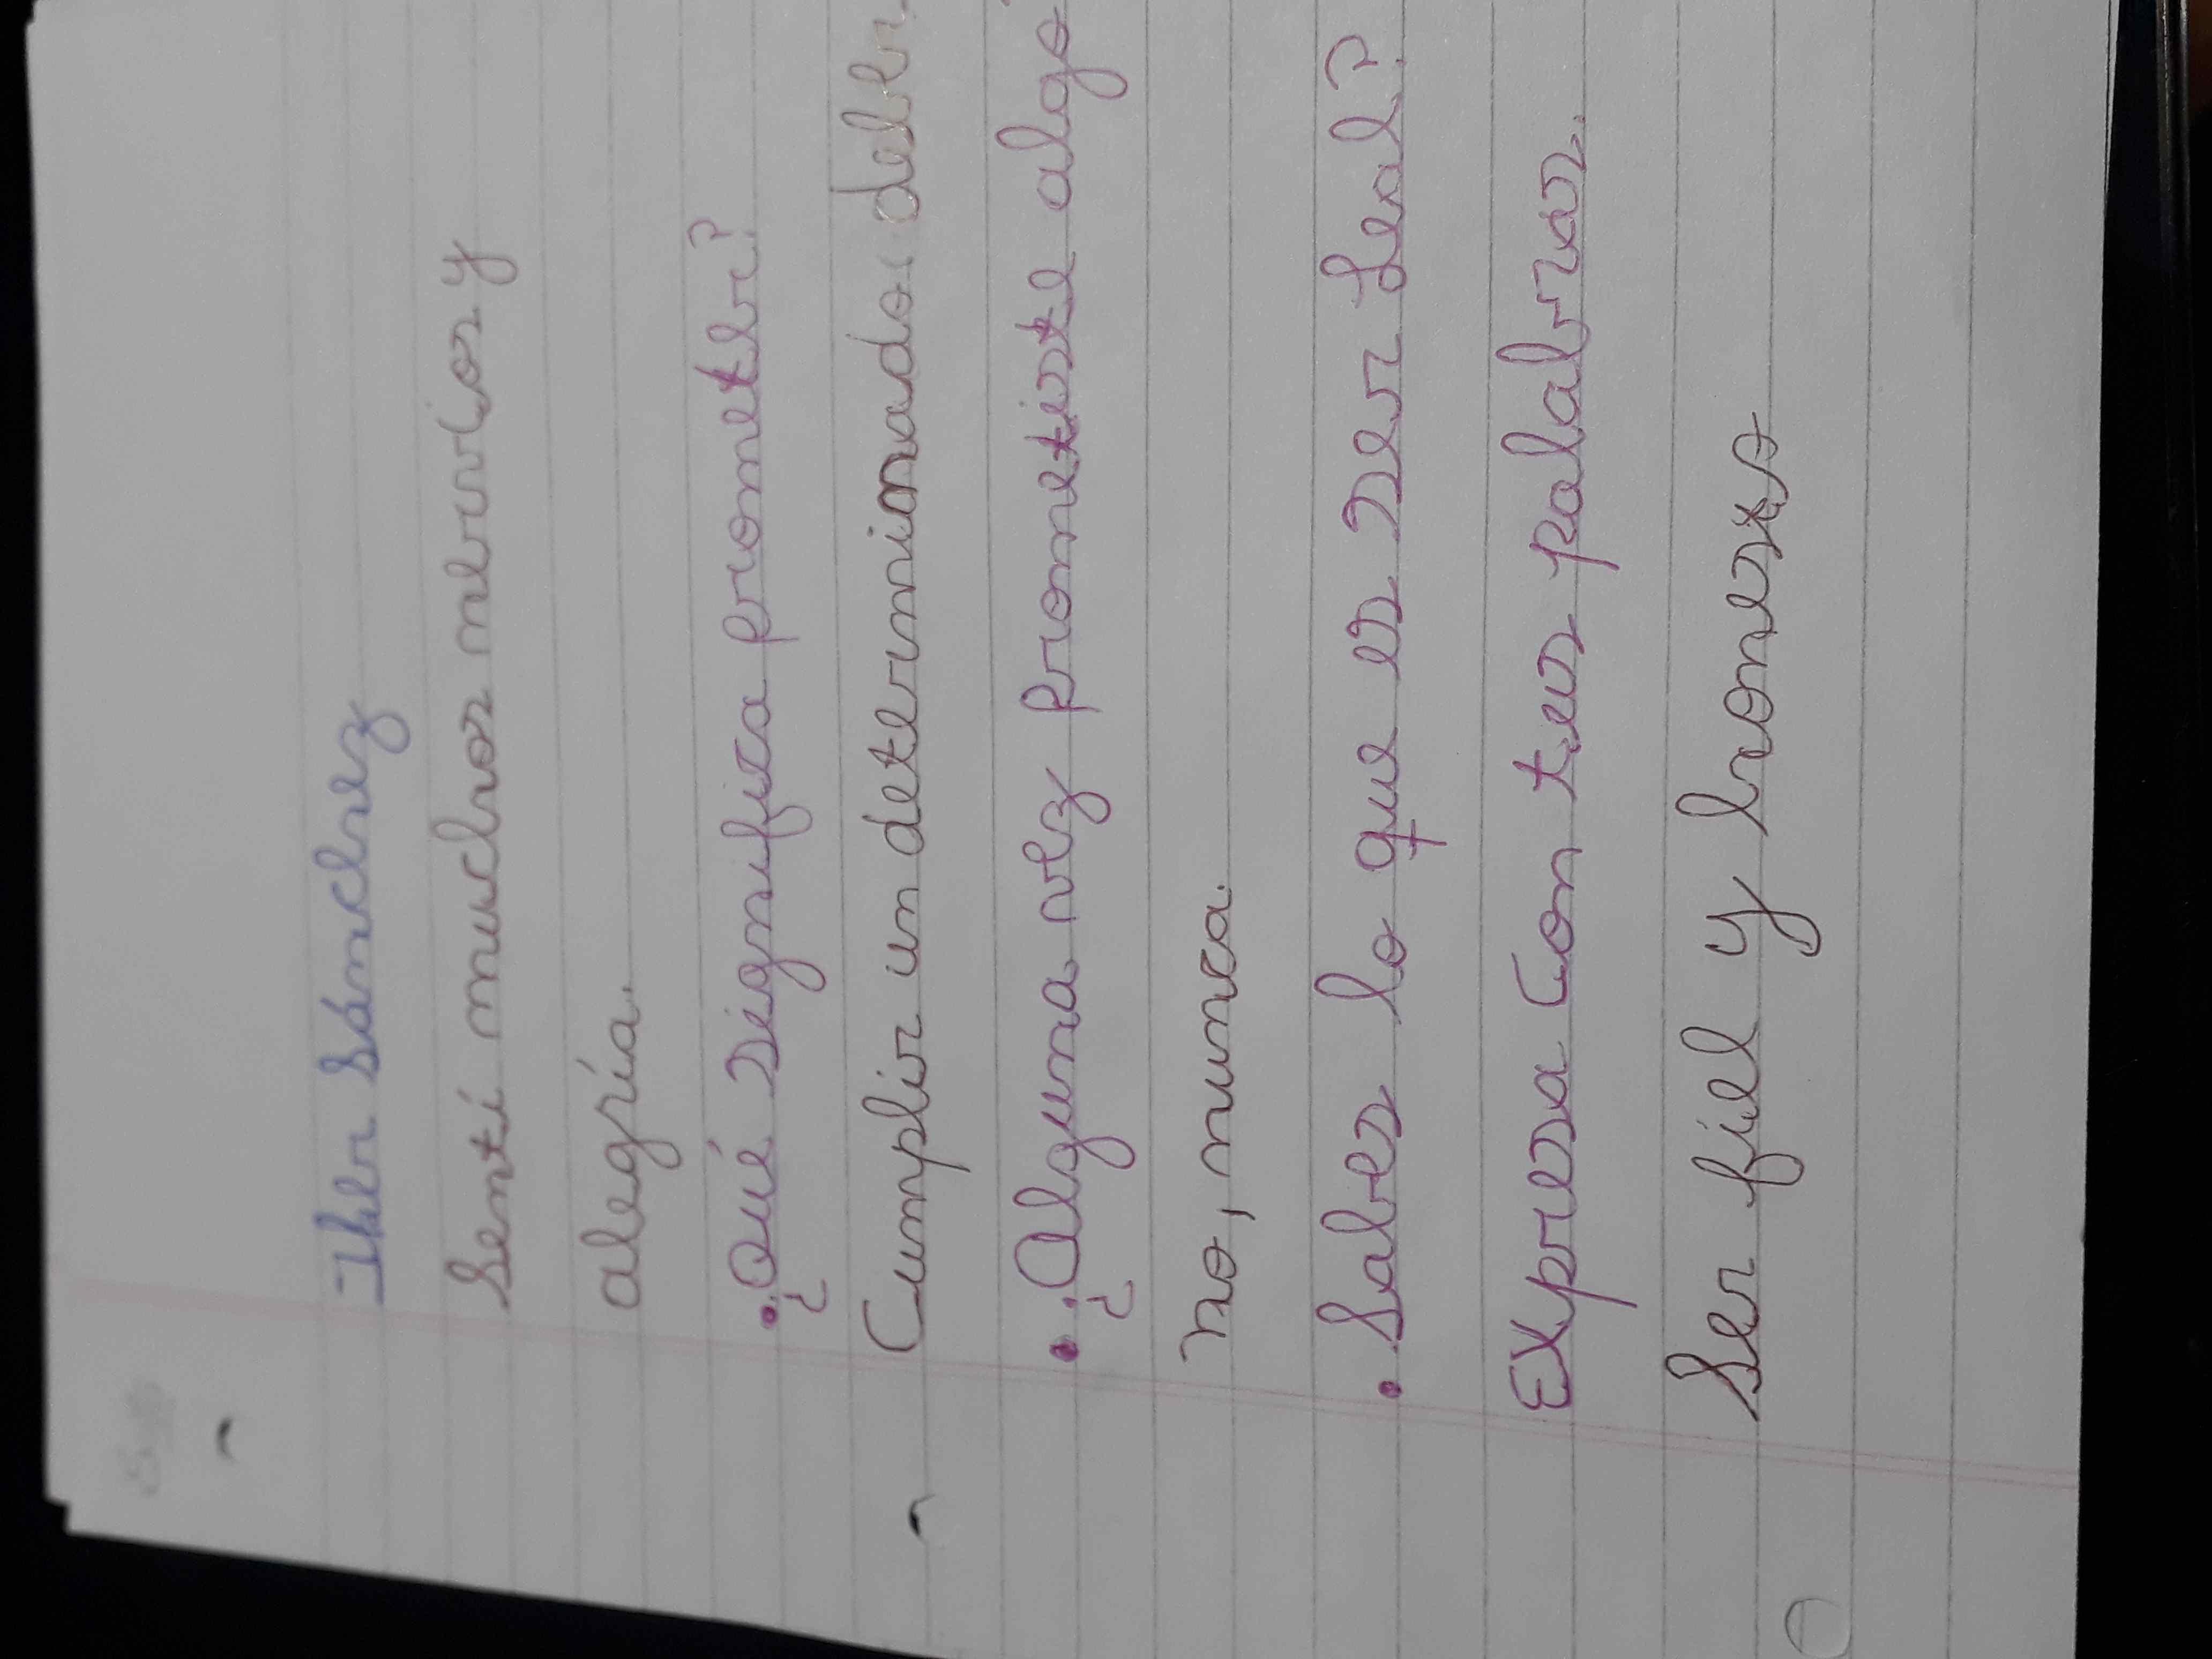 Iker Sánchez
Sentí muchos nervios y
alegría.
• ¿Qué significa prometer?
Cumplir un determinado deber.
• ¿Alguna vez prometiste algo
no, nunca.
• Sabes lo que es ser Leal?
Expresa Con tus palabras.
Ser fiel y honesto